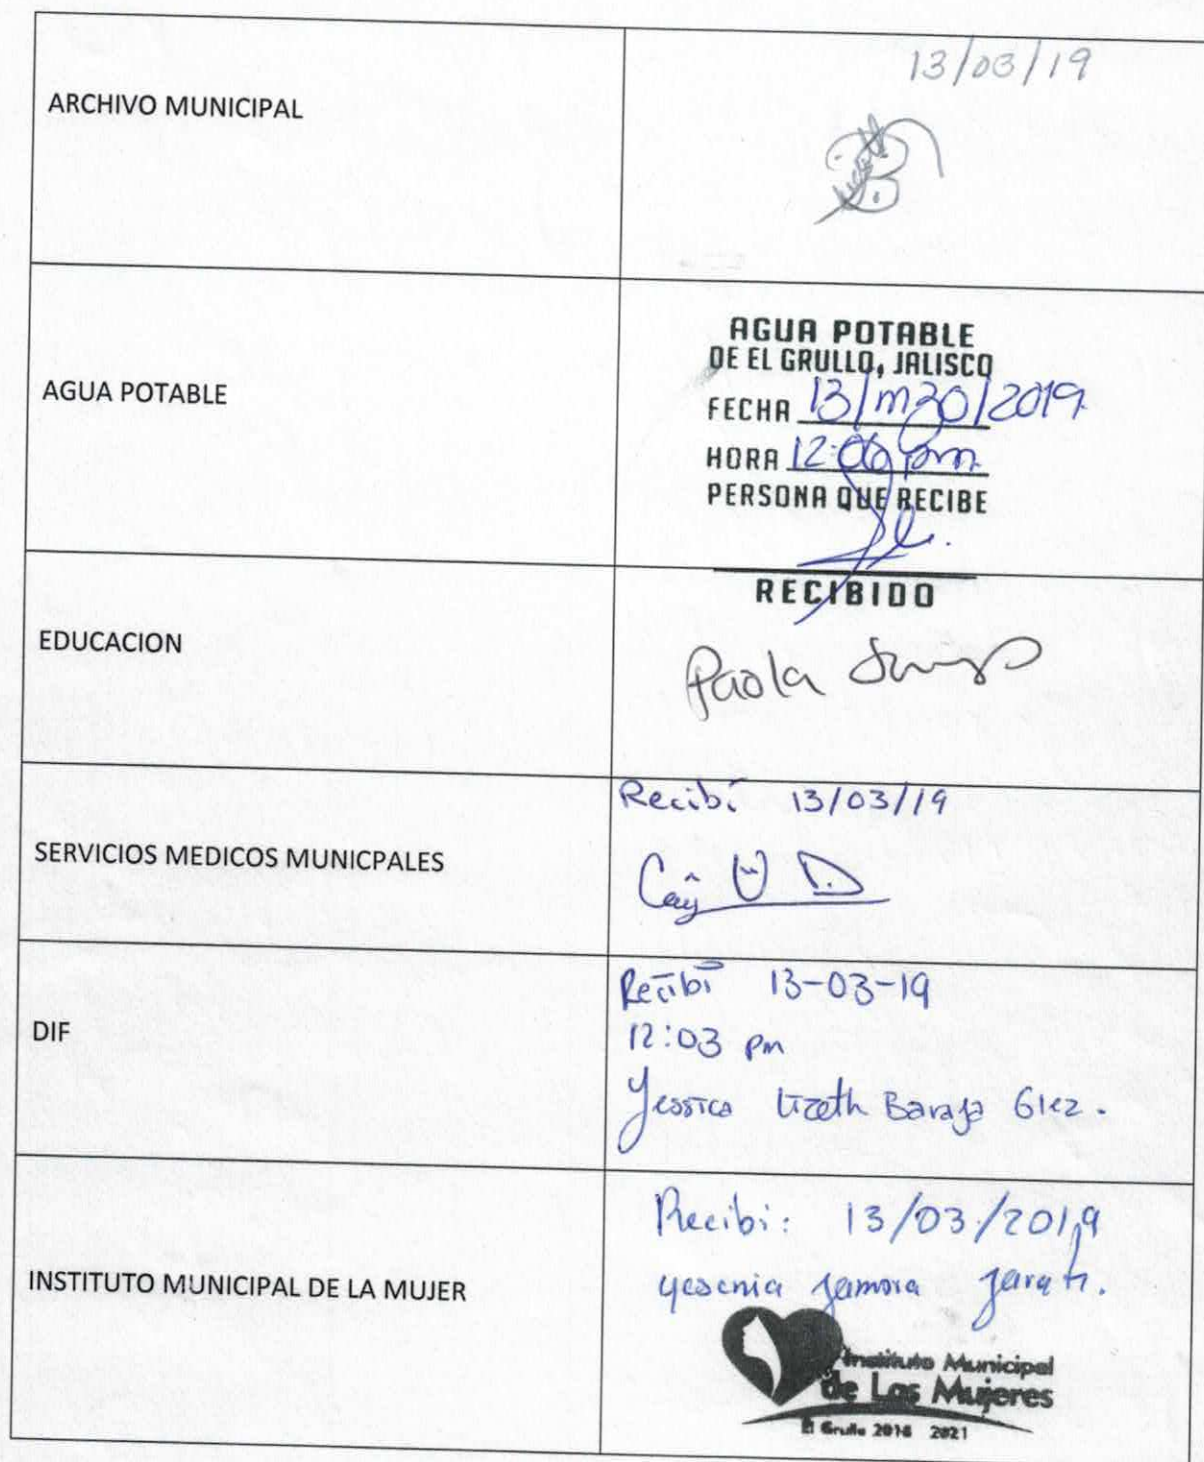 ARCHIVO MUNICIPAL
13/03/19
AGUA POTABLE
AGUA POTABLE
DE EL GRULLO, JALISCO
FECHA 13/mzo/2019
HORA 12:06 pm
PERSONA QUE RECIBE
RECIBIDO
EDUCACION
Paola
SERVICIOS MEDICOS MUNICPALES
Recibí 13/03/19
DIF
Recibí 13-03-19
12:03 pm
Yessica Lizeth Baraja Glez.
INSTITUTO MUNICIPAL DE LA MUJER
Recibi: 13/03/2019
Yesenia Zamora
Instituto Municipal
de Las Mujeres
El Grullo 2018 2021